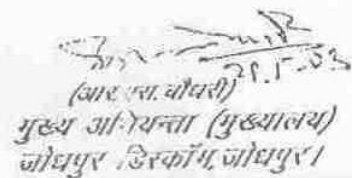 29.5.03
(आर. एस. चौधरी)
मुख्य अभियन्ता (मुख्यालय)
जोधपुर डिस्कॉम, जोधपुर।